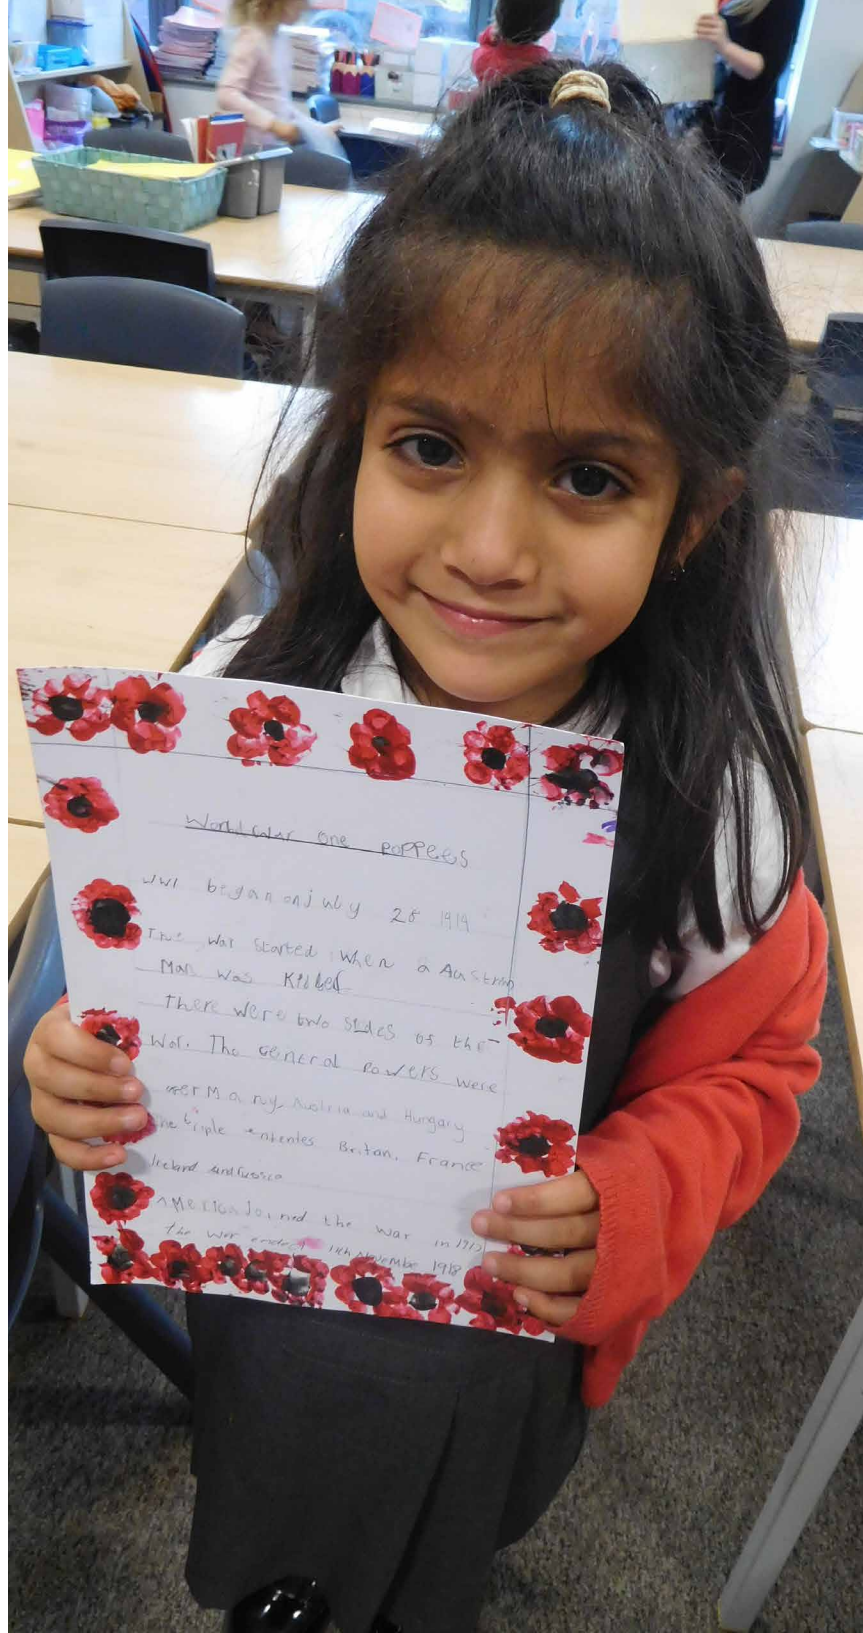 World War one poppees
WWI began on july 28 1914
The war started when a Austrian
Man was Killed
There were two sides of the
War. The General Powers were
Germany, Austria and Hungary
The triple ententes Britan, France
Ireland and Russia
America Joined the war in 1917
the war ended 11th Novembe 1918